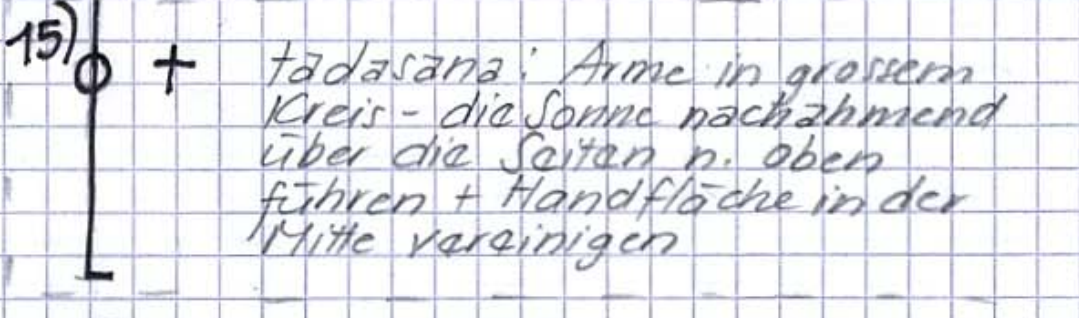 15) + tadasana: Arme in grossem
Kreis - die Sonne nachahmend
über die Seiten n. oben
führen + Handfläche in der
Mitte vereinigen